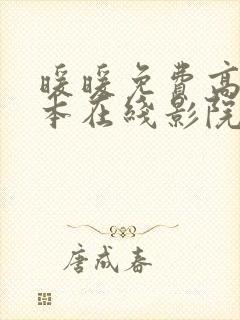 暖暖免费高
本在线影院
唐成春